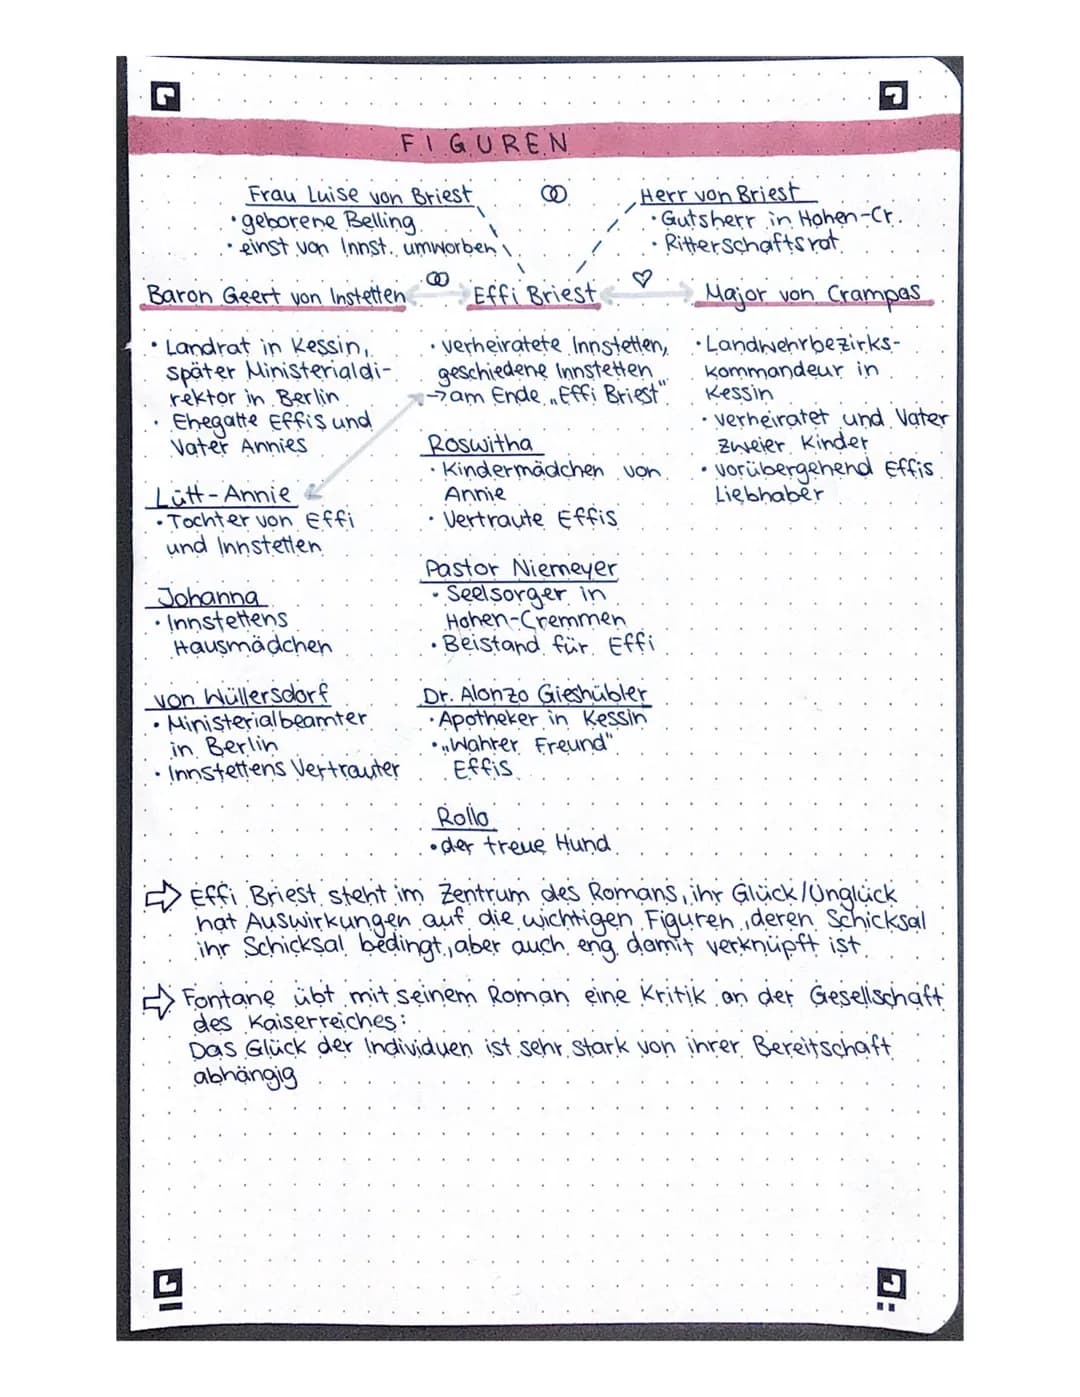 FIGUREN
Frau Luise von Briest
• geborene Belling
• einst von Innst. umworben
Herr von Briest
• Gutsherr in Hohen-Cr.
• Ritterschaftsrat
Baron Geert von Instetten
Effi Briest
Major von Crampas
• Landrat in Kessin,
später Ministerialdi-
rektor in Berlin
• Ehegatte Effis und
Vater Annies
Lütt-Annie
• Tochter von Effi
und Innstetten
Johanna
• Innstettens
Hausmädchen
von Wüllersdorf
• Ministerialbeamter
in Berlin
• Innstettens Vertrauter
• verheiratete Innstetten,
geschiedene Innstetten
→ am Ende „Effi Briest"
Roswitha
• Kindermädchen von
Annie
• Vertraute Effis
Pastor Niemeyer
• Seelsorger in
Hohen-Cremmen
• Beistand für Effi
Dr. Alonzo Gieshübler
• Apotheker in Kessin
• „Wahrer Freund"
Effis
Rollo
• der treue Hund
• Landwehrbezirks-
kommandeur in
Kessin
• verheiratet und Vater
zweier Kinder
• vorübergehend Effis
Liebhaber
⇒ Effi Briest steht im Zentrum des Romans, ihr Glück/Unglück
hat Auswirkungen auf die wichtigen Figuren, deren Schicksal
ihr Schicksal bedingt, aber auch eng damit verknüpft ist
⇒ Fontane übt mit seinem Roman eine Kritik an der Gesellschaft
des Kaiserreiches:
Das Glück der Individuen ist sehr stark von ihrer Bereitschaft
abhängig